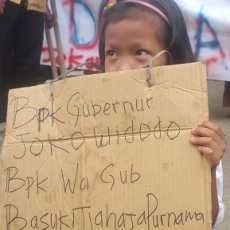 Bpk Gubernur
JOKOWidodo
Bpk Wa Gub
BasukiTjahaJaPurnama